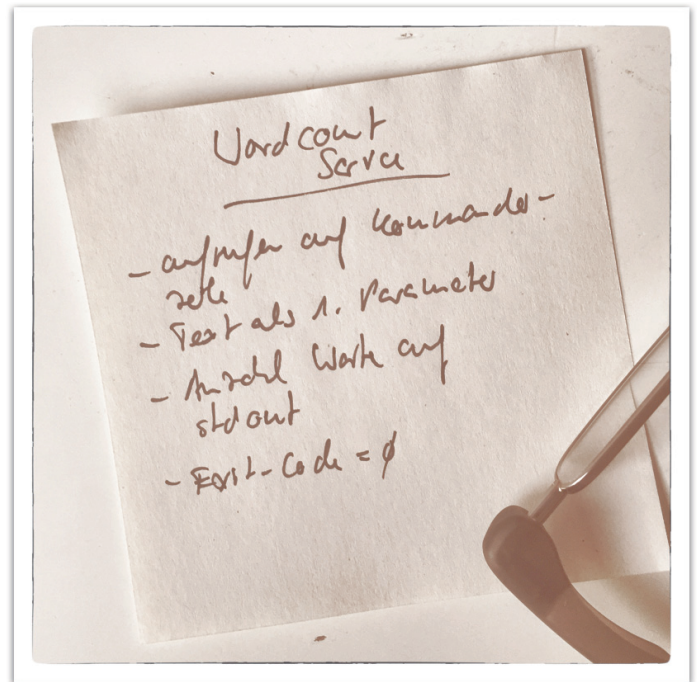 Wordcount
Service
- aufrufen auf Kommando-
zeile
- Text als 1. Parameter
- Anzahl Worte auf
stdout
- Exit-Code = 0